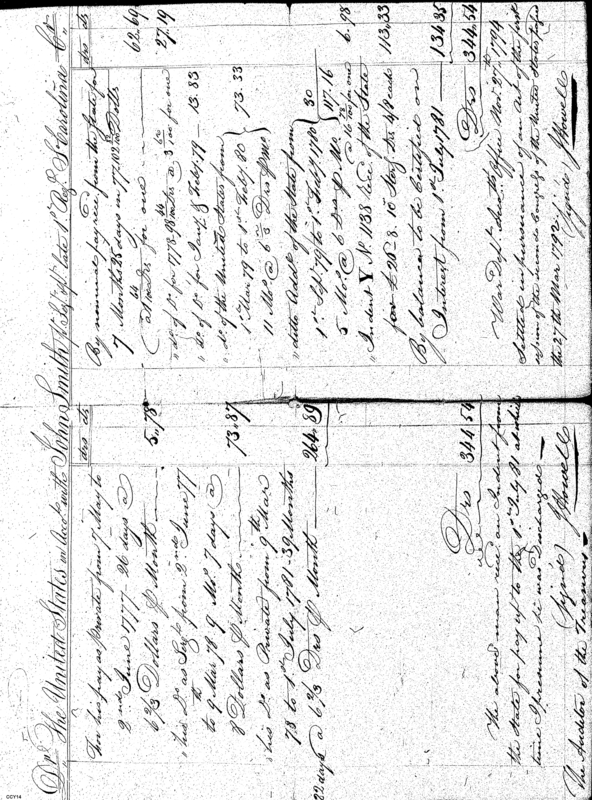 Drs. The United States in Accot. with John Smith Qr. Sergt. late 1st Regt. So. Carolina Crs.
drs cts
For his pay as Private from 7 May to
2nd June 1777 - 26 days @
6 2/3 Dollars p Month 5.78
" his Do. as Sergt. from 2nd June 77
to 9th Mar 78 9 Mos. 7 days @
8 Dollars p Month 73.87
" his Do. as Private from 9th Mar
78 to 1st July 1781 - 39 Months
22 days @ 6 2/3 Drs p Month 264.89
Drs 344.54
The above man recd. an Indent from
the State for pay up to the 1st July 81 at which
time I presume he was Discharged
(Signed) J Howell
The Auditor of the Treasury
drs cts
By nominal pay recd. from the State for
7 Months 25 days in 77. 102 Dolls
@ for one 62.69
" do. of Do. for 1778. 96 @ 3 for one 27.19
" do. of Do. for Jany. & Feby. 79 - 13.83
" do. of the United States from
1st Mar 79 to 1st Feby. 80
11 Mos. @ 6 2/3 Drs p Mo. 73.33
" ditto Addl. of the State from
1st Sept. 79 to 1st Feby. 1780 30
5 Mos. @ 6 Drs p Mo. 117.16
@ for one 6.98
" Indent Y No. 1138 recd. of the State
for £26-8.10 Sterg. 113.33
By balance to be Certified on
Interest from 1st July 1781 - 134.35
Drs 344.54
War Dept. Accts. Office Novr. 27th. 1794
Settled in pursuance of an Act of the first
session of the second Congress of the United States passed
the 27th Mar 1792.
(Signed) J Howell
CCY14